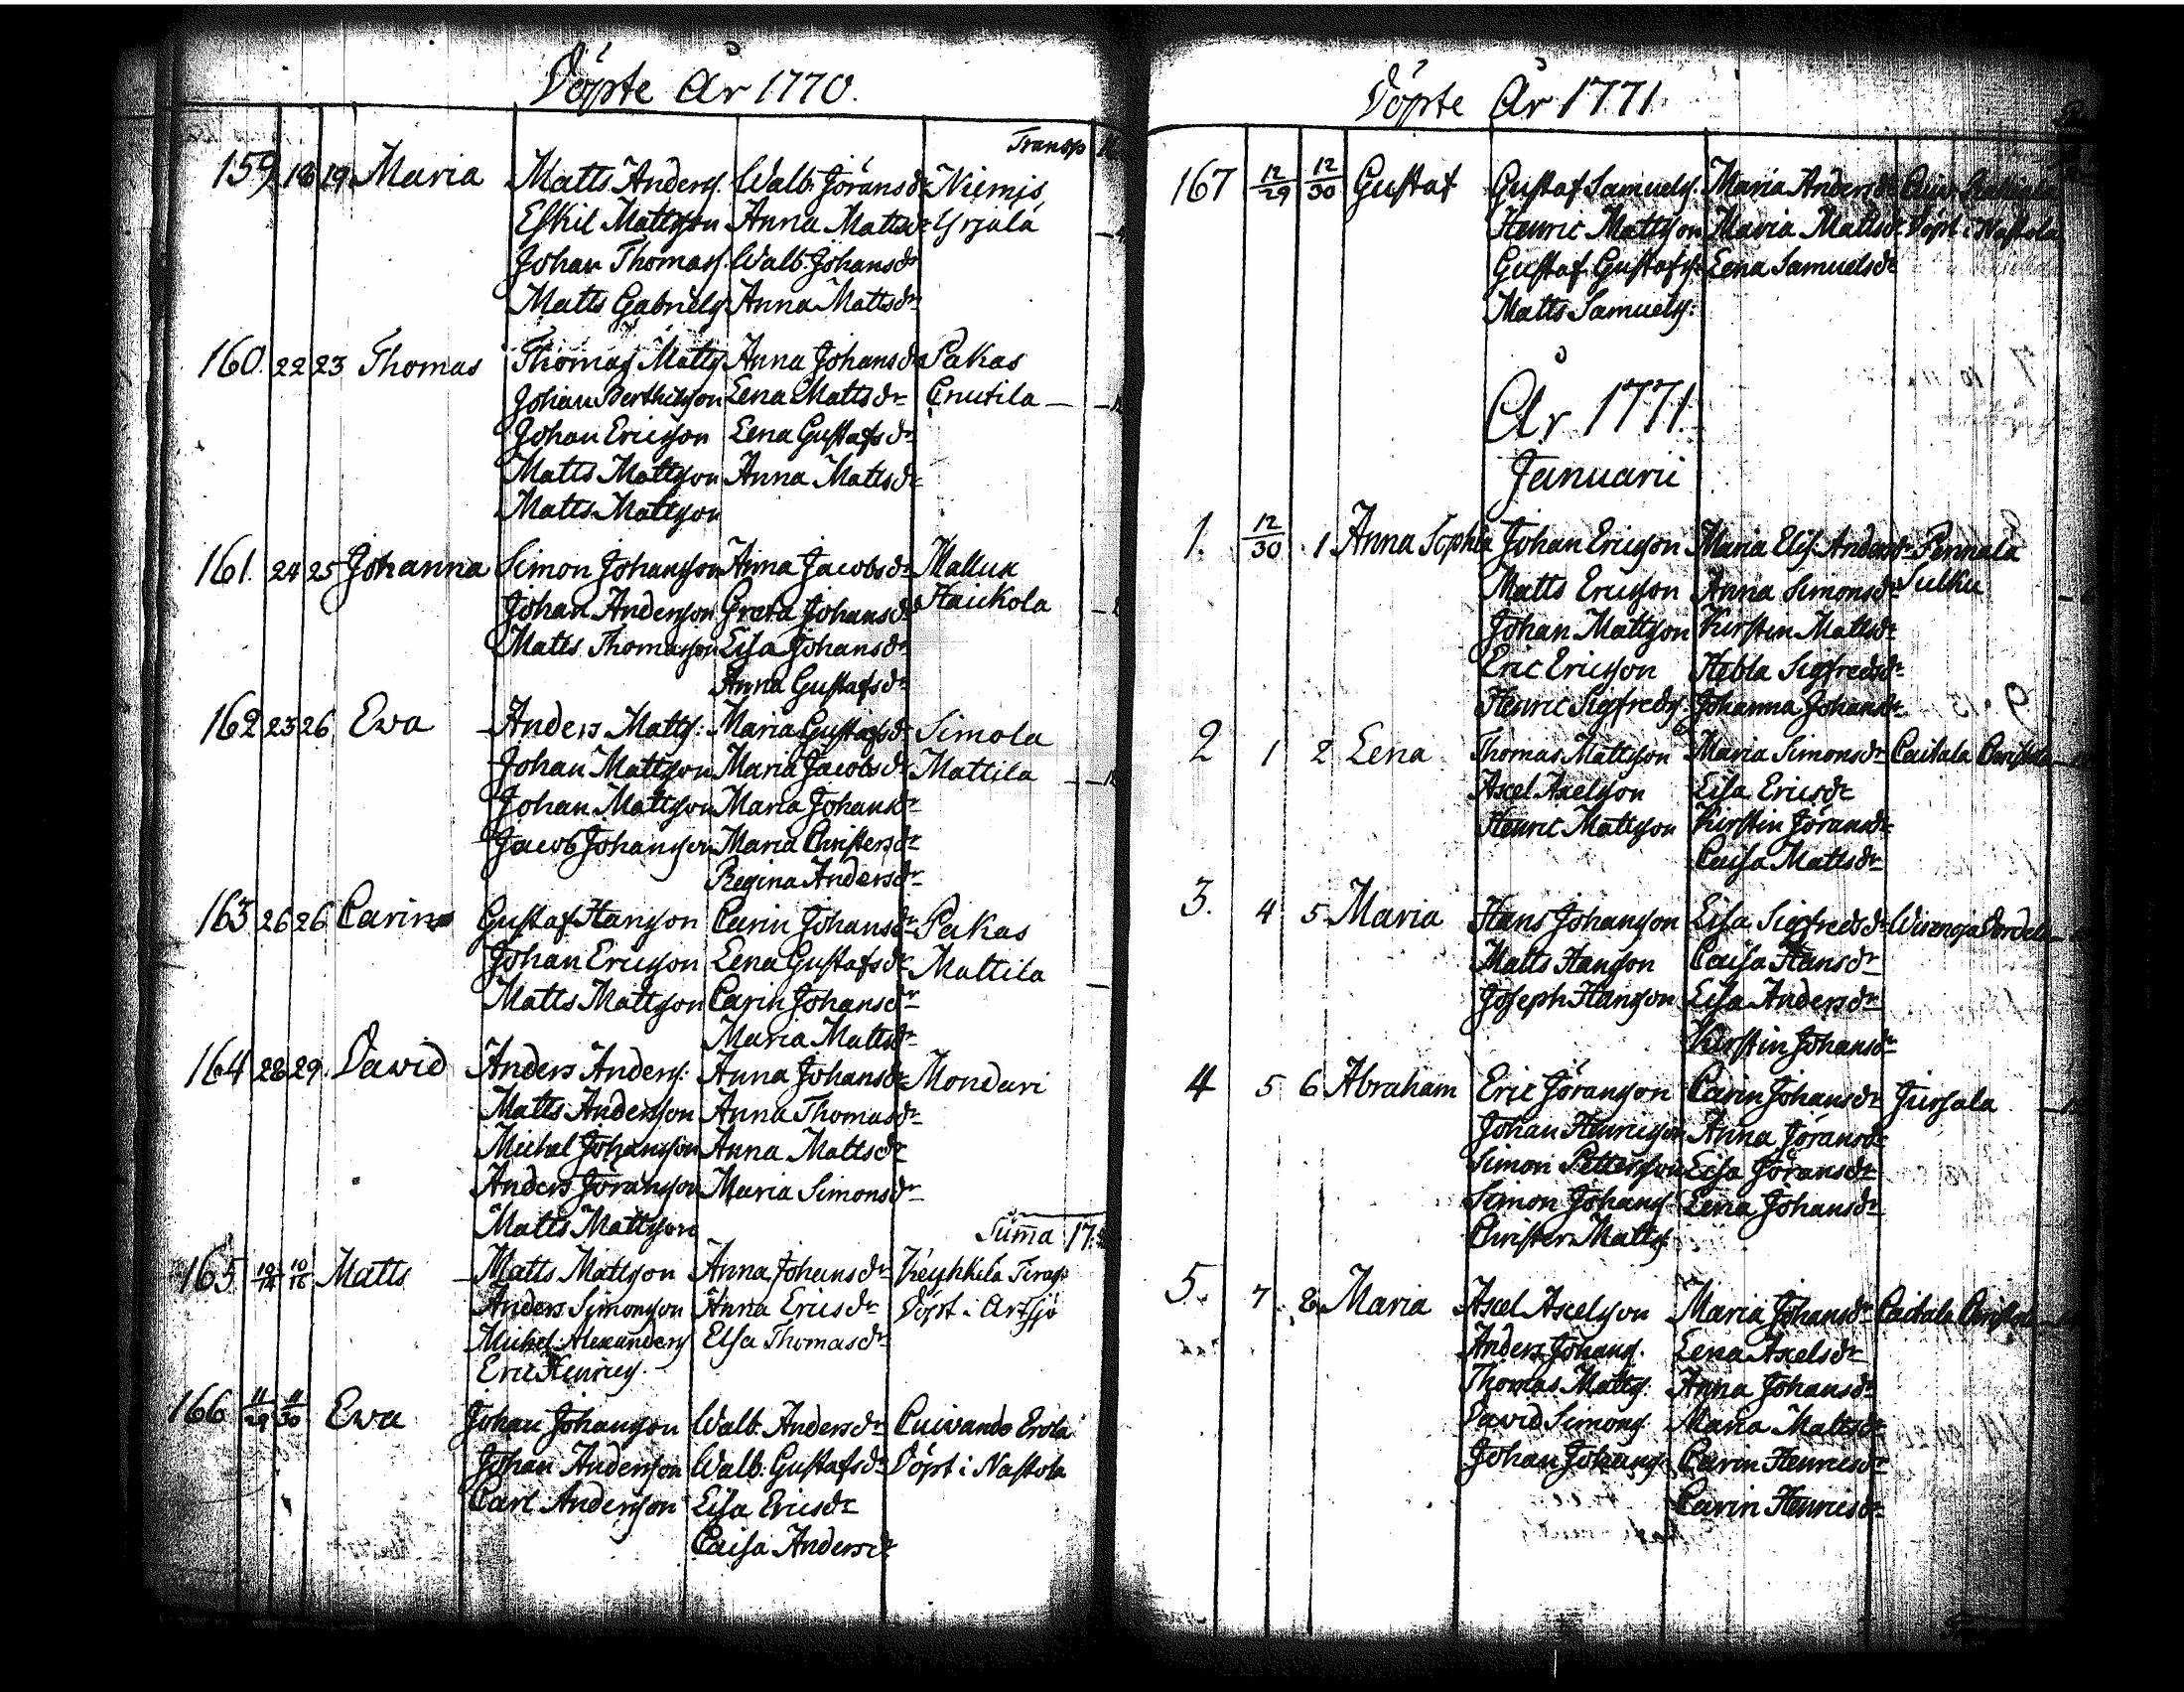 Döpte År 1770.
Transp
159 18 19 Maria Matts Anders. Walb. Jöransdr Niemis
Eskil Mattsson Anna Mattsdr Yrjälä
Johan Thomass. Walb. Johansdr
Matts Gabriels. Anna Mattsdr
160. 22 23 Thomas Thomas Matts. Anna Johansdr Pakas
Johan Berthilsson Lena Mattsdr Cnutila
Johan Ericsson Lena Gustafsdr
Matts Mattsson Anna Mattsdr
Matts Mattsson
161. 24 25 Johanna Simon Johansson Anna Jacobsdr Mallus
Johan Andersson Greta Johansdr Haickola
Matts Thomasson Lisa Johansdr
Anna Gustafsdr
162 23 26 Ewa Anders Matts: Maria Gustafsdr Simola
Johan Mattsson Maria Jacobsdr Mattila
Johan Mattsson Maria Johansdr
Jacob Johansson Maria Christersdr
Regina Andersdr
163 26 26 Carin Gustaf Hansson Carin Johansdr Pakas
Johan Ericsson Lena Gustafsdr Mattila
Matts Mattsson Carin Johansdr
Maria Mattsdr
164 28 29. David Anders Anders: Anna Johansdr Mondari
Matts Andersson Anna Thomasdr
Michel Johansson Anna Mattsdr
Anders Jöransson Maria Simonsdr
Matts Mattsson
Suma 17
165 10/16 Matts Matts Mattsson Anna Johansdr
Anders Simonsson Anna Ericsdr Döpt i Artsjö
Michel Alexanders Elsa Thomasdr
Eric Henrics.
166 11/29 11/30 Ewa Johan Johansson Walb. Andersdr Cuivando Erola
Johan Andersson Walb. Gustafsdr Döpt i Nastola
Carl Andersson Lisa Ericsdr
Caisa Andersdr
Döpte År 1771
167 12/29 12/30 Gustaf Gustaf Samuels. Maria Andersdr
Henric Mattsson Maria Mattsdr Döpt i Nastola
Gustaf Gustafs: Lena Samuelsdr
Matts Samuels:
År 1771.
Januarii
1. 12/30 1 Anna Sophia Johan Ericsson Maria Elis. Andersdr Pennala
Matts Ericsson Anna Simonsdr Sulku
Johan Mattsson Kirstin Mattsdr
Eric Ericsson Hebla Sigfredsdr
Henric Sigfreds. Johanna Johansdr
2 1 2 Lena Thomas Mattsson Maria Simonsdr Caitala
Axel Axelsson Lisa Ericsdr
Henric Mattsson Kirstin Jöransdr
Caisa Mattsdr
3. 4 5 Maria Hans Johansson Lisa Sigfredsdr
Matts Hansson Caisa Hansdr
Joseph Hansson Lisa Andersdr
Kirstin Johansdr
4 5 6 Abraham Eric Jöransson Carin Johansdr Jursala
Johan Henricsson Anna Jöransdr
Simon Pettersson Lisa Jöransdr
Simon Johans. Lena Johansdr
Christer Matts.
5. 7. 8 Maria Axel Axelsson Maria Johansdr Caitala
Anders Johans. Lena Axelsdr
Thomas Matts. Anna Johansdr
David Simons. Maria Mattsdr
Johan Johans. Carin Henricsdr
Carin Henricsdr